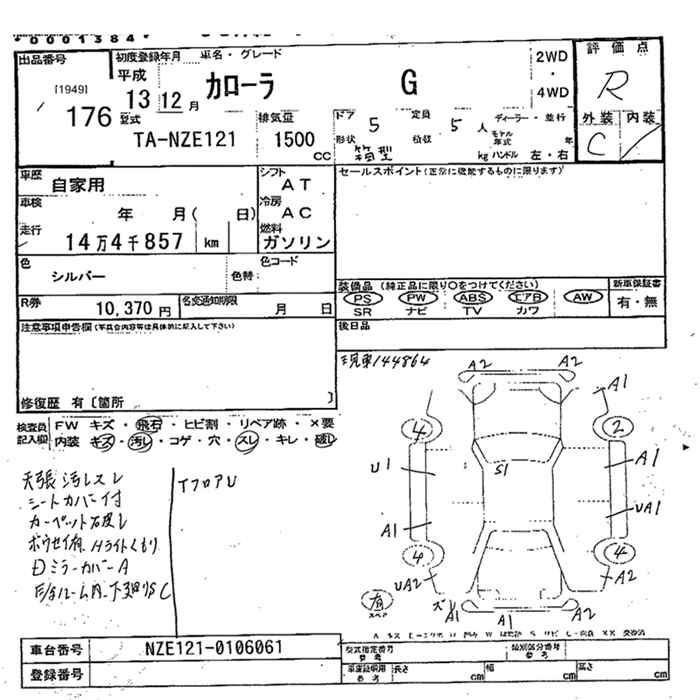 *0001384*
出品番号
[1949]
176
初度登録年月 車名・グレード
平成
13 12 月
カローラ
G
2WD
・
4WD
評価点
R
型式
TA-NZE121
排気量
1500
CC
ドア 5
形状
定員 5 人
積載 kg
ディーラー・並行
モデル年式 年
ハンドル 左・右
外装 内装
C
車歴
自家用
シフト
AT
セールスポイント(正常に機能するものに限ります)
車検
年 月( 日)
冷房
AC
走行
14万4千857 km
燃料
ガソリン
色
シルバー
色替
色コード
装備品 (純正品に限り○をつけてください)
PS PW ABS エアB AW
SR ナビ TV カワ
新車保証書
有・無
R券
10,370 円
名変通知期限
月 日
後日品
注意事項申告欄(写真会内容等は具体的に記入して下さい)
修復歴 有〔箇所 〕
144864
検査員記入欄
FW キズ・飛石・ヒビ割・リペア跡・×要
内装 キズ・汚し・コゲ・穴・スレ・キレ・破し
天張汚レスレ
シートカバー付
カーペット
Hライトくもり
ミラーカバーA
TフロアU
A2 A2
A1
4 2
U1 S1 A1
A1 UA1
4 4
UA2 A2
有
スペア
A1 A1 A2
車台番号
NZE121-0106061
登録番号
型式指定番号
類別区分番号
参考
車庫証明用
参考
長さ cm
幅 cm
高さ cm